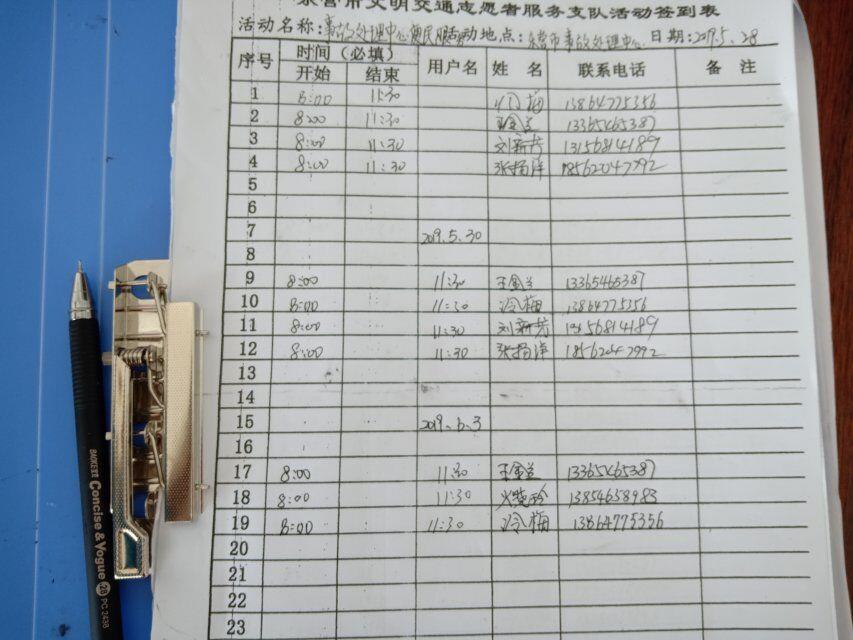 东营市文明交通志愿者服务支队活动签到表
活动名称:事故处理中心便民服务 活动地点:东营市事故处理中心 日期:2019.5.28
序号 时间(必填) 用户名 姓名 联系电话 备注
开始 结束
1 8:00 11:30 冷梅 13864775356
2 8:00 11:30 王金兰 13365465387
3 8:00 11:30 刘新芳 13156814189
4 8:00 11:30 张扬洋 18562047992
5
6
7 2019.5.30
8
9 8:00 11:30 王金兰 13365465387
10 8:00 11:30 冷梅 13864775356
11 8:00 11:30 刘新芳 13156814189
12 8:00 11:30 张扬洋 18562047992
13
14
15 2019.6.3
16
17 8:00 11:30 王金兰 13365465387
18 8:00 11:30 13854658983
19 8:00 11:30 冷梅 13864775356
20
21
22
23
BAOKE宝克 Concise & Vogue PC 2438